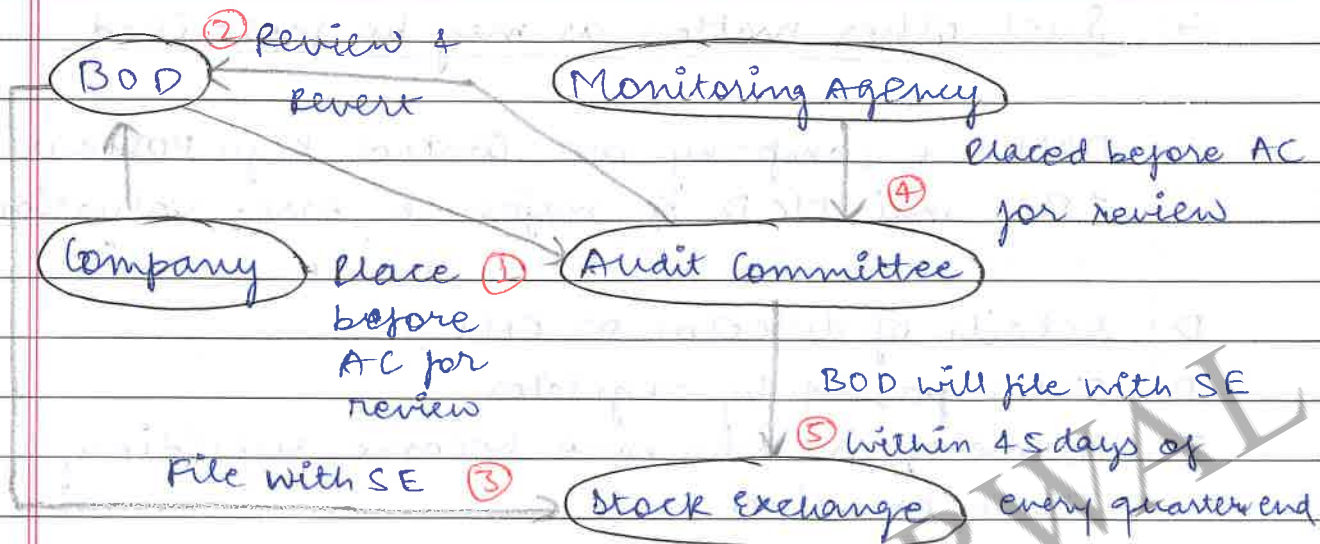 ② Review &
Revert
BOD
Monitoring Agency
Placed before AC
④
for review
Company
Place ①
before
AC for
review
Audit Committee
BOD will file with SE
⑤ within 45 days of
every quarter end
File with SE ③
Stock Exchange